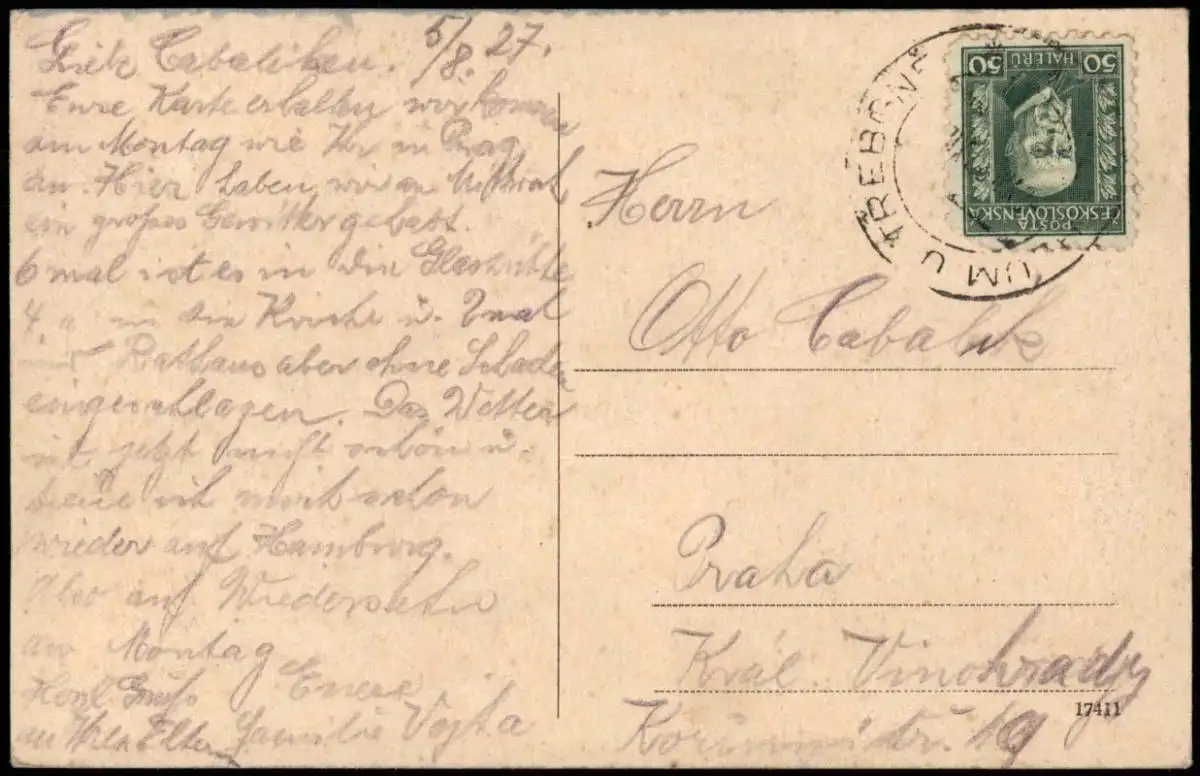 5/8. 27.
Liebe Cabaliken.
Eure Karte erhalten wir komen
am Montag wie Ihr in Prag
an. Hier haben wir am Mittwoch
ein großes Gewitter gehabt.
6 mal ist es in die Glashütte
4 in die Kirche u. 2 mal
Rathaus aber ohne Schaden
eingeschlagen. Das Wetter
ist jetzt nicht schön u.
freue ich mich schon
wieder auf Hamburg.
Also auf Wiedersehn
am Montag
Herzl Gruß Eure
an Ihre Eltern Familie Vojta
Herrn
Otto Cabalik
Praha
Král. Vinohrady
17411
50 50
HALERŮ
POSTA
ČESKOSLOVENSKÁ
UM U TŘEBONĚ